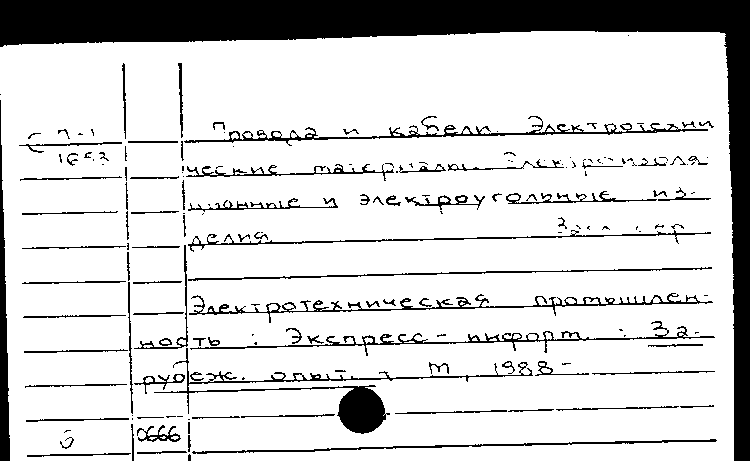 С П-1
Провода и кабели. Электротехни
ческие материалы. Электроизоля
ционные и электроугольные из-
делия.
Электротехническая промышлен-
ность : Экспресс-информ. : За-
рубеж. опыт. М, 1988-
0666